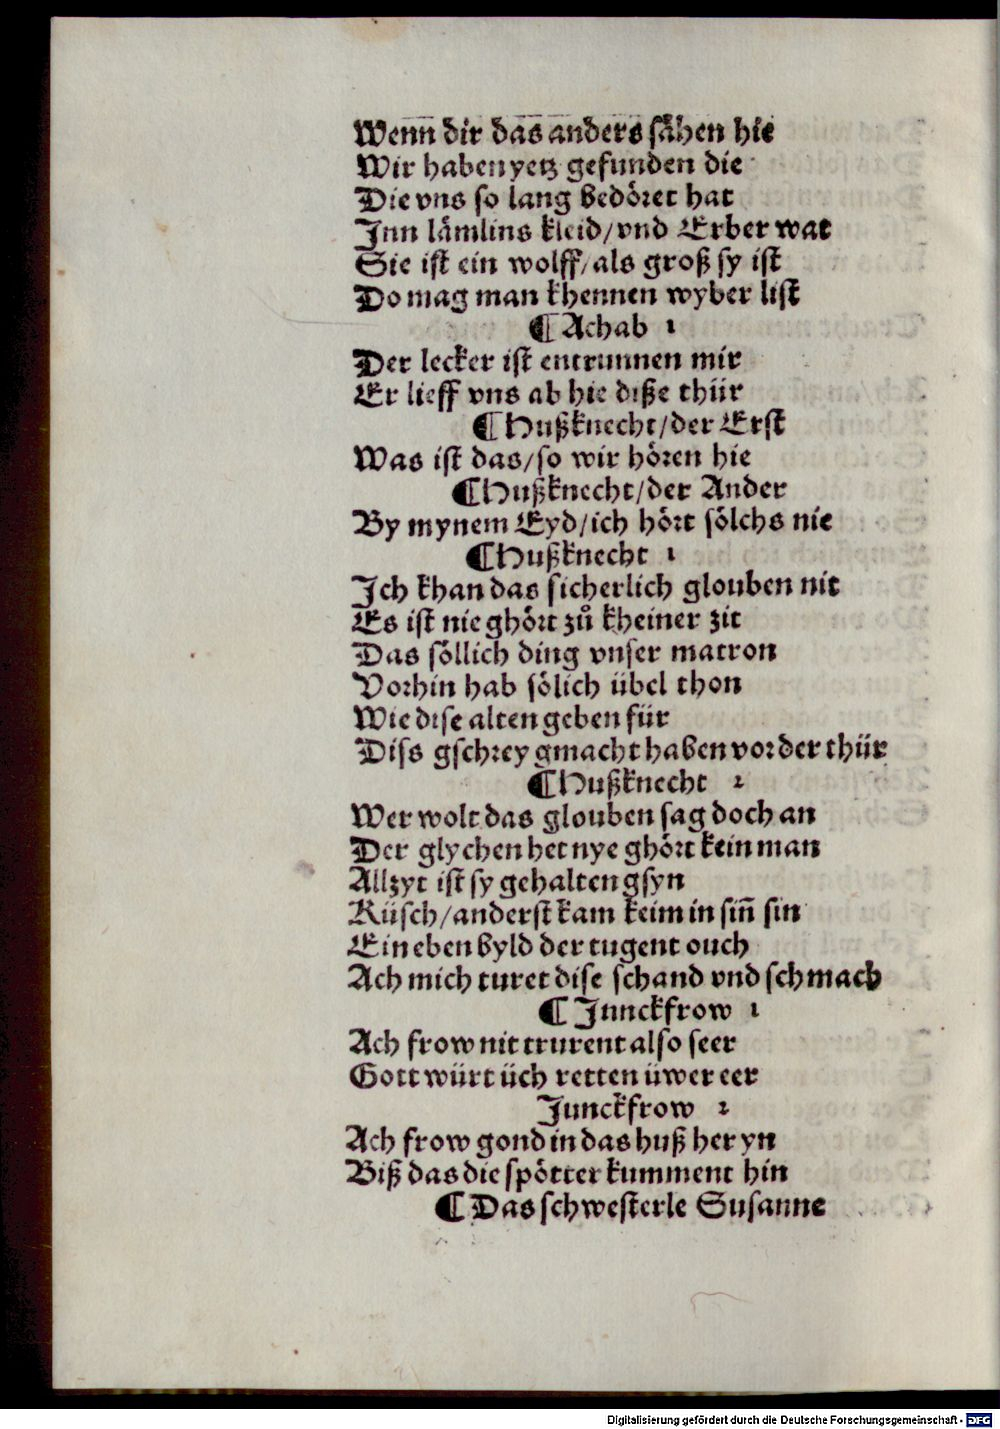 Wenn dir das anders sähen hie
Wir haben yetz gefunden die
Die vns so lang bedöret hat
Inn lämlins kleid/vnd Erber wat
Sie ist ein wolff/als groß sy ist
Do mag man khennen wyber list
¶ Achab 1
Der lecker ist entrunnen mir
Er lieff vns ab hie diße thür
¶ Hußknecht/der Erst
Was ist das/so wir hören hie
¶ Hußknecht/der Ander
By mynem Eyd/ich hört sölchs nie
¶ Hußknecht 1
Ich khan das sicherlich glouben nit
Es ist nie ghört zů kheiner zit
Das söllich ding vnser matron
Vorhin hab sölich übel thon
Wie dise alten geben für
Diss gschrey gmacht haben vor der thür
¶ Hußknecht 2
Wer wolt das glouben sag doch an
Der glychen het nye ghört kein man
Allzyt ist sy gehalten gsyn
Küsch/anderst kam keim in sin̄ sin
Ein eben byld der tugent ouch
Ach mich turet dise schand vnd schmach
¶ Junckfrow 1
Ach frow nit trurent also seer
Gott würt üch retten üwer eer
Junckfrow 2
Ach frow gond in das huß her yn
Biß das die spötter kumment hin
¶ Das schwesterle Susanne
Digitalisierung gefördert durch die Deutsche Forschungsgemeinschaft - DFG